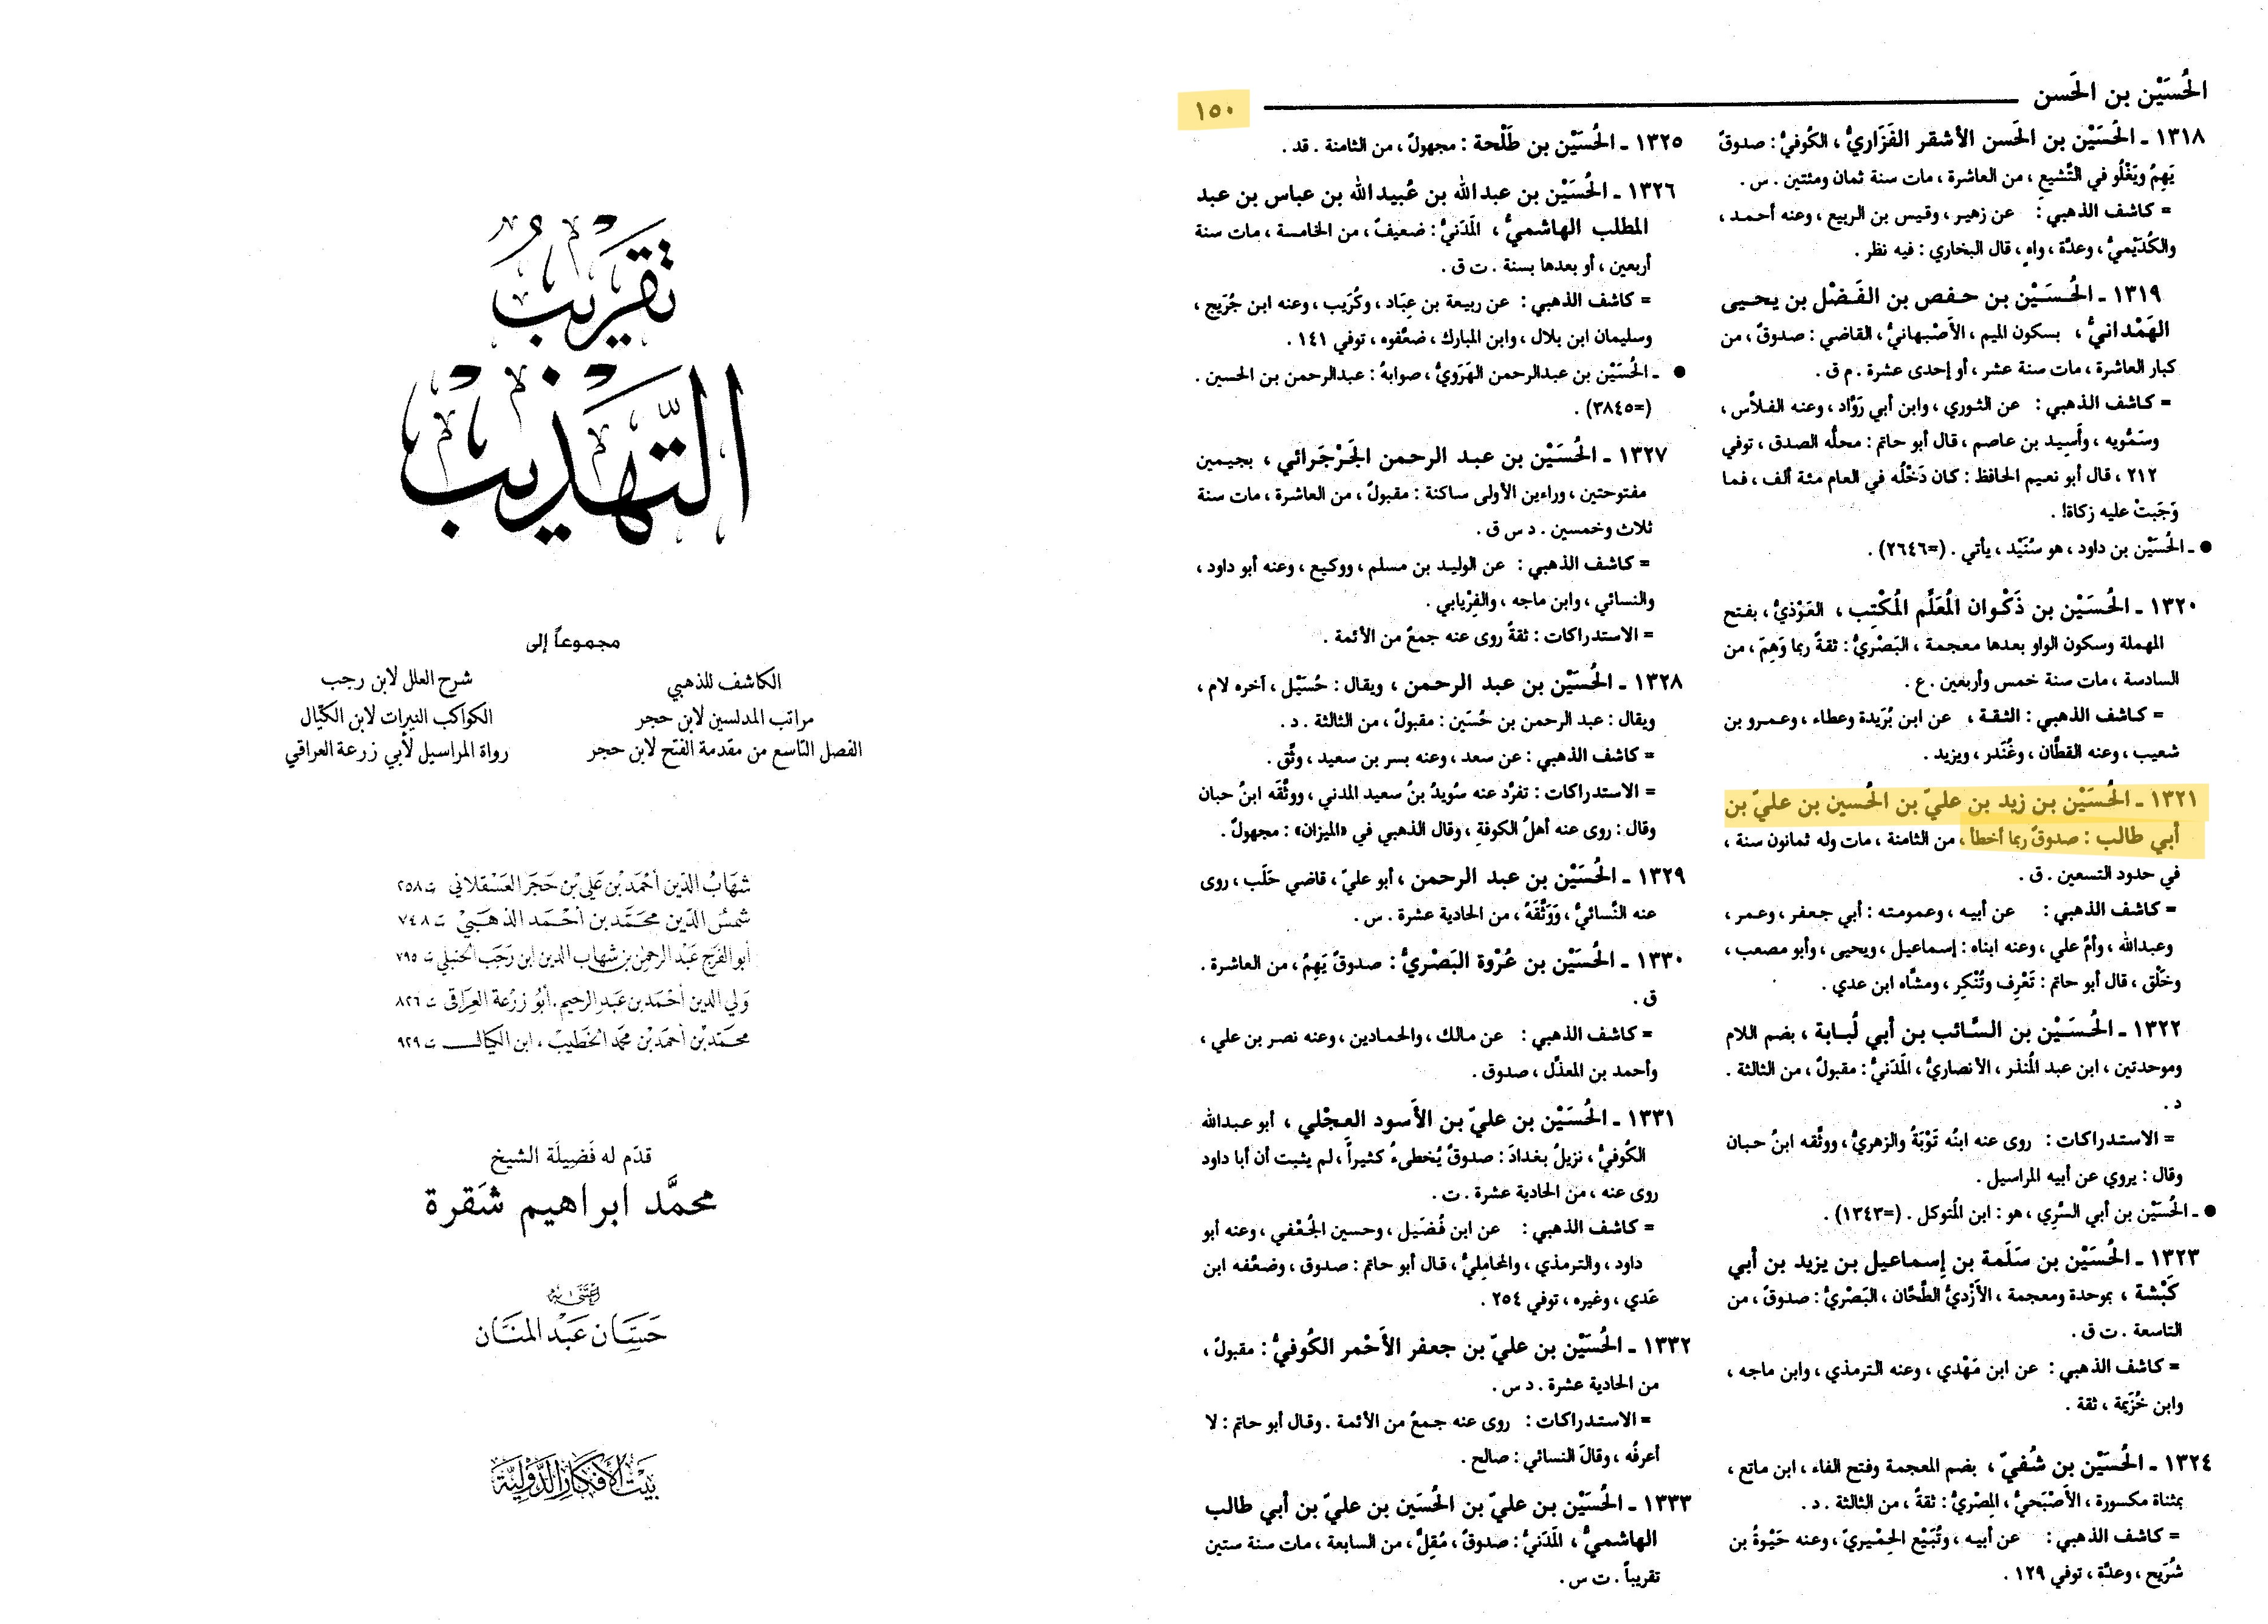 الحُسَيْن بن الحَسن
١٥٠
١٣١٨ ـ الحُسَيْن بن الحَسن الأشقر الفَزَاريُّ ، الكُوفيُّ : صدوقٌ
يَهِمُ ويَغْلُو في التَّشيع ، من العاشرة ، مات سنة ثمان ومئتين . س .
= كاشف الذهبي : عن زهير ، وقيس بن الربيع ، وعنه أحمد ،
والكُدَيْميُّ ، وعدَّة ، واهٍ ، قال البخاري : فيه نظر .
١٣١٩ ـ الحُسَيْن بن حفص بن الفَضْل بن يحيى
الهَمْدانيُّ ، بسكون الميم ، الأَصْبهانيُّ ، القاضي : صدوقٌ ، من
كبار العاشرة ، مات سنة عشر ، أو إحدى عشرة . م ق .
= كاشف الذهبي : عن الثوري ، وابن أبي رَوَّاد ، وعنه الفلاَّس ،
وسَمُّويه ، وأَسِيد بن عاصم ، قال أبو حاتم : محلُّه الصدق ، توفي
٢١٢ ، قال أبو نعيم الحافظ : كان دَخْلُه في العام مئة ألف ، فما
وَجَبتْ عليه زكاة! .
● ـ الحُسَيْن بن داود ، هو سُنَيْد ، يأتي . (=٢٦٤٦) .
١٣٢٠ ـ الحُسَيْن بن ذَكْوان المُعَلِّم المُكْتِب ، العَوْذيُّ ، بفتح
المهملة وسكون الواو بعدها معجمة ، البَصْريُّ : ثقةٌ ربما وَهِمَ ، من
السادسة ، مات سنة خمس وأربعين . ع .
= كاشف الذهبي : الثقة ، عن ابن بُرَيدة وعطاء ، وعمرو بن
شعيب ، وعنه القطَّان ، وغُنْدَر ، ويزيد .
١٣٢١ ـ الحُسَيْن بن زيد بن عليّ بن الحُسين بن عليّ بن
أبي طالب : صدوقٌ ربما أخطأ ، من الثامنة ، مات وله ثمانون سنة ،
في حدود التسعين . ق .
= كاشف الذهبي : عن أبيه ، وعمومته : أبي جعفر ، وعمر ،
وعبدالله ، وأمّ علي ، وعنه ابناه : إسماعيل ، ويحيى ، وأبو مصعب ،
وخَلْق ، قال أبو حاتم : تَعْرِف وتُنْكِر ، ومشَّاه ابن عدي .
١٣٢٢ ـ الحُسَيْن بن السَّائب بن أبي لُبابة ، بضم اللام
وموحدتين ، ابن عبد المُنذر ، الأنصاريُّ ، المَدَنيُّ : مقبولٌ ، من الثالثة .
د .
= الاستدراكات : روى عنه ابنُه تَوْبَةُ والزهريُّ ، ووثَّقه ابنُ حبان
وقال : يروي عن أبيه المراسيل .
● ـ الحُسَيْن بن أبي السَّرِي ، هو : ابن المُتوكل . (=١٣٤٣) .
١٣٢٣ ـ الحُسَيْن بن سَلَمة بن إسماعيل بن يزيد بن أبي
كَبْشة ، بموحدة ومعجمة ، الأَزْديُّ الطَّحَّان ، البَصْريُّ : صدوقٌ ، من
التاسعة . ت ق .
= كاشف الذهبي : عن ابن مَهْدي ، وعنه الترمذي ، وابن ماجه ،
وابن خُزَيمة ، ثقة .
١٣٢٤ ـ الحُسَيْن بن شُفيّ ، بضم المعجمة وفتح الفاء ، ابن ماتع ،
بمثناة مكسورة ، الأَصْبَحيُّ ، المِصْريُّ : ثقةٌ ، من الثالثة . د .
= كاشف الذهبي : عن أبيه ، وتُبَيْع الحِمْيريّ ، وعنه حَيْوةُ بن
شُرَيح ، وعدَّة ، توفي ١٢٩ .
١٣٢٥ ـ الحُسَيْن بن طَلْحة : مجهولٌ ، من الثامنة . قد .
١٣٢٦ ـ الحُسَيْن بن عبدالله بن عُبيدالله بن عباس بن عبد
المطلب الهاشميُّ ، المَدَنيُّ : ضعيفٌ ، من الخامسة ، مات سنة
أربعين ، أو بعدها بسنة . ت ق .
= كاشف الذهبي : عن ربيعة بن عِبَاد ، وكُرَيب ، وعنه ابن جُرَيج ،
وسليمان ابن بلال ، وابن المبارك ، ضعَّفوه ، توفي ١٤١ .
● ـ الحُسَيْن بن عبدالرحمن الهَرَويُّ ، صوابهُ : عبدالرحمن بن الحسين .
(=٣٨٤٥) .
١٣٢٧ ـ الحُسَيْن بن عبد الرحمن الجَرْجَرائي ، بجيمين
مفتوحتين ، وراءين الأولى ساكنة : مقبولٌ ، من العاشرة ، مات سنة
ثلاث وخمسين . د س ق .
= كاشف الذهبي : عن الوليد بن مسلم ، ووكيع ، وعنه أبو داود ،
والنسائي ، وابن ماجه ، والفِرْيابي .
= الاستدراكات : ثقةٌ روى عنه جمعٌ من الأئمة .
١٣٢٨ ـ الحُسَيْن بن عبد الرحمن ، ويقال : حُسَيْل ، آخره لام ،
ويقال : عبد الرحمن بن حُسَين : مقبولٌ ، من الثالثة . د .
= كاشف الذهبي : عن سعد ، وعنه بسر بن سعيد ، وثِّق .
= الاستدراكات : تفرَّد عنه سُويدُ بنُ سعيد المدني ، ووثَّقَه ابنُ حبان
وقال : روى عنه أهلُ الكوفةِ ، وقال الذهبي في «الميزان» : مجهولٌ .
١٣٢٩ ـ الحُسَيْن بن عبد الرحمن ، أبو عليّ ، قاضي حَلَب ، روى
عنه النَّسائيُّ ، وَوَثَّقَهُ ، من الحادية عشرة . س .
١٣٣٠ ـ الحُسَيْن بن عُرْوة البَصْريُّ : صدوقٌ يَهِمُ ، من العاشرة .
ق .
= كاشف الذهبي : عن مالك ، والحمادين ، وعنه نصر بن علي ،
وأحمد بن المعذَّل ، صدوق .
١٣٣١ ـ الحُسَيْن بن عليّ بن الأَسود العجْلي ، أبو عبدالله
الكُوفيُّ ، نزيلُ بغدادَ : صدوقٌ يُخطىءُ كثيراً ، لم يثبت أن أبا داود
روى عنه ، من الحادية عشرة . ت .
= كاشف الذهبي : عن ابن فُضَيل ، وحسين الجُعْفي ، وعنه أبو
داود ، والترمذي ، والمحامِليُّ ، قال أبو حاتم : صدوق ، وضعَّفه ابن
عَدي ، وغيره ، توفي ٢٥٤ .
١٣٣٢ ـ الحُسَيْن بن عليّ بن جعفر الأَحْمر الكُوفيُّ : مقبولٌ ،
من الحادية عشرة . د س .
= الاستدراكات : روى عنه جمعٌ من الأئمة . وقال أبو حاتم : لا
أعرفُه ، وقالَ النسائي : صالح .
١٣٣٣ ـ الحُسَيْن بن عليّ بن الحُسَين بن عليّ بن أبي طالب
الهاشميُّ ، المَدَنيُّ : صدوقٌ ، مُقِلٌّ ، من السابعة ، مات سنة ستين
تقريباً . ت س .
تقريبُ
التّهذيب
مجموعاً إلى
الكاشف للذهبي
شرح العلل لابن رجب
مراتب المدلسين لابن حجر
الكواكب النيرات لابن الكيّال
الفصل التاسع من مقدمة الفتح لابن حجر
رواة المراسيل لأبي زرعة العراقي
شهَابُ الدّين أحْمَد بْن عَلي بْن حَجَر العَسْقلاني ت ٢٥٨
شمسُ الدّين محَمَّد بن أحْمد الذهَبيّ ت ٧٤٨
أبو الفَرَج عَبْد الرحمٰن بن شهاب الدين ابن رَجَب الحَنبلي ت ٧٩٥
وَلي الدين أحْمَد بن عَبد الرحيم . أبُو زرْعة العِرَاقي ت ٨٢٦
محمَّد بْن أحمَد بْن محمّد الخَطيبْ ، ابن الكيال ت ٩٢٩
قدّم له فَضِيلَة الشيخ
محمَّد ابراهيم شَقرة
اعتنى به
حَسَّان عَبْد المنَّان
بَيْت الأفكار الدَّوليّة